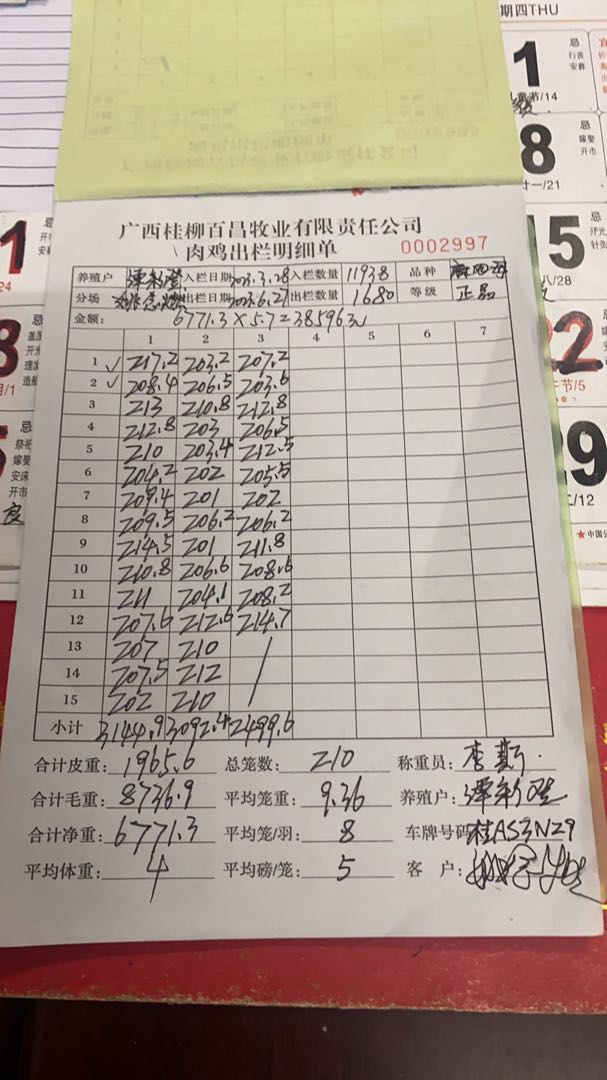 期四THU
1
忌
行丧
安葬
儿童节/14
0002989
8
忌
嫁娶
开市
廿一/21
广西桂柳百昌牧业有限责任公司
肉鸡出栏明细单
0002997
养殖户 入栏日期 2023.3.28 入栏数量 11938 品种
分场 出栏日期 2023.6.27 出栏数量 1680 等级 正品
金额: 6771.3×5.7=38596元
1 2 3 4 5 6 7
1 ✓ 217.2 203.2 207.2
2 ✓ 208.4 206.5 203.6
3 213 210.8 212.8
4 212.8 203 206.5
5 210 203.4 212.5
6 204.2 202 205.5
7 209.4 201 202
8 209.5 206.2 206.2
9 214.5 201 211.8
10 210.8 206.6 208.6
11 211 204.1 208.2
12 207.6 212.6 214.7
13 207 210 /
14 207.5 212
15 202 210
小计 3144.9 3092.4 2499.6
合计皮重: 1965.6 总笼数: 210 称重员: 李斯
合计毛重: 8736.9 平均笼重: 9.36 养殖户:
合计净重: 6771.3 平均笼/羽: 8 车牌号码 桂AS3N29
平均体重: 4 平均磅/笼: 5 客户:
5
忌
开光
针灸
八/28
22
午节/5
29
二/12
★中国公
1
忌
24
8
忌
盖屋
开光
/1
5
忌
祭祀
嫁娶
安床
开市